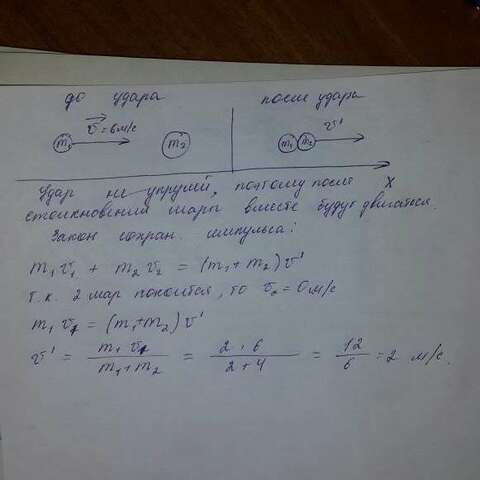 до удара
после удара
v = 6 м/с
v'
m₁
m₂
m₁ m₂
x
Удар не упругий, поэтому после
столкновения шары вместе будут двигаться.
Закон сохран. импульса:
m₁v₁ + m₂v₂ = (m₁+m₂)v'
т.к. 2 шар покоится, то v₂ = 0 м/с
m₁v₁ = (m₁+m₂)v'
v' = m₁v₁ / m₁+m₂ = 2·6 / 2+4 = 12 / 6 = 2 м/с.